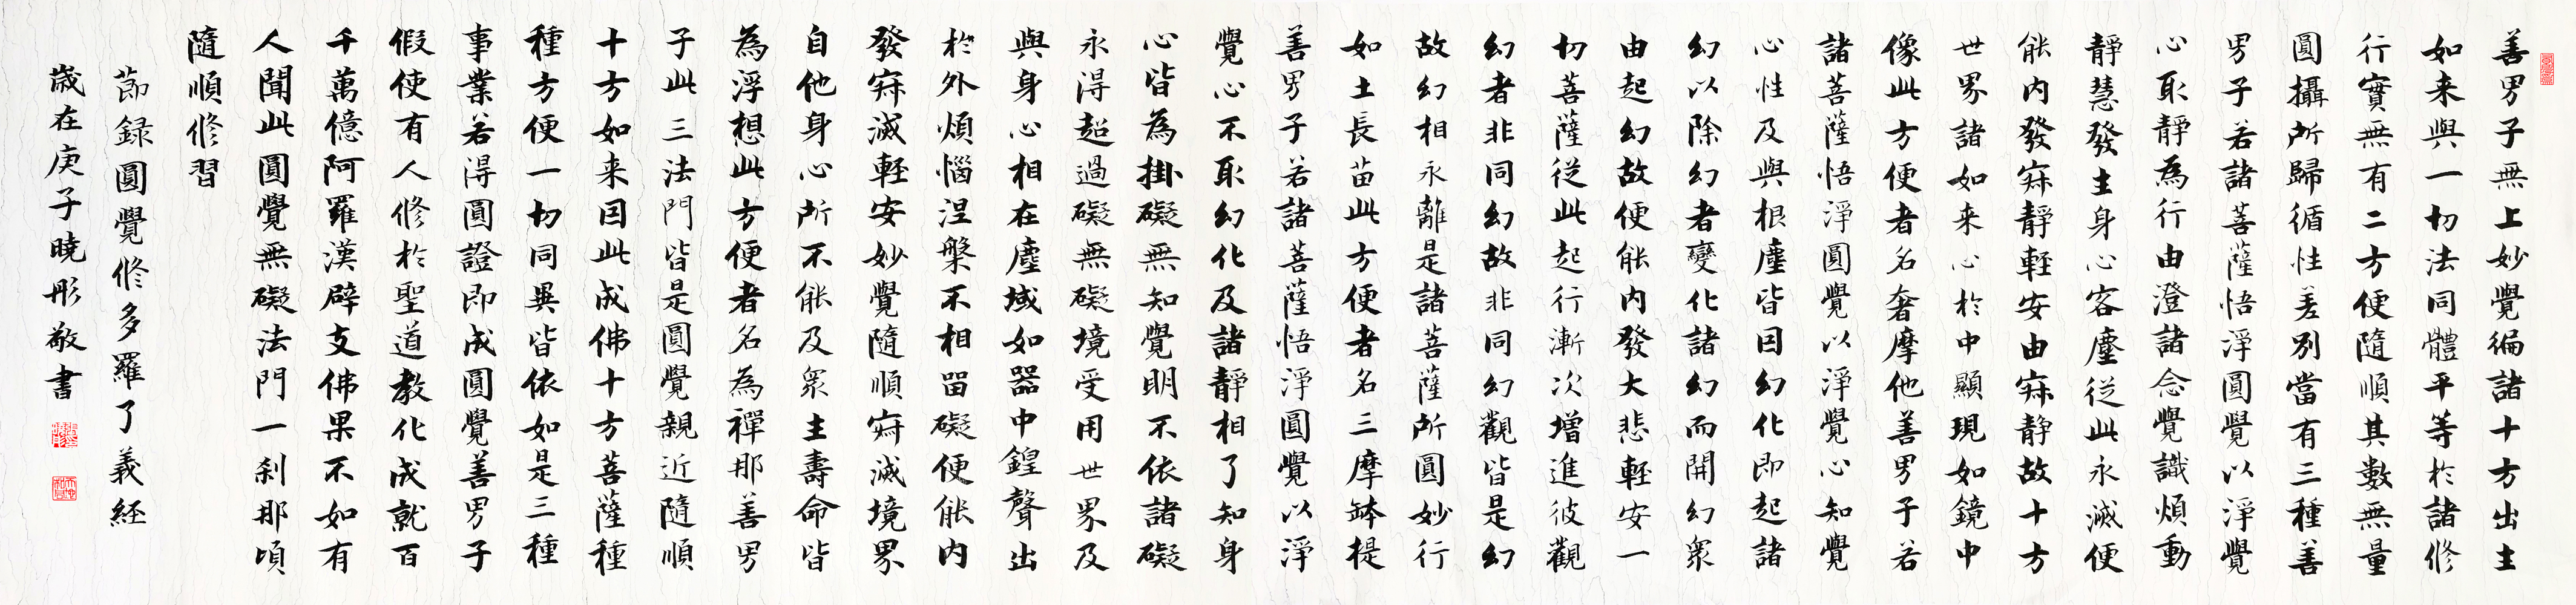 善男子無上妙覺徧諸十方出生
如来與一切法同體平等於諸修
行實無有二方便隨順其數無量
圓攝所歸循性差別當有三種善
男子若諸菩薩悟淨圓覺以淨覺
心取靜為行由澄諸念覺識煩動
靜慧發生身心客塵從此永滅便
能内發寂靜軽安由寂静故十方
世界諸如来心於中顯現如鏡中
像此方便者名奢摩他善男子若
諸菩薩悟淨圓覺以淨覺心知覺
心性及與根塵皆因幻化即起諸
幻以除幻者變化諸幻而開幻衆
由起幻故便能内發大悲軽安一
切菩薩從此起行漸次增進彼觀
幻者非同幻故非同幻觀皆是幻
故幻相永離是諸菩薩所圓妙行
如土長苗此方便者名三摩鉢提
善男子若諸菩薩悟淨圓覺以淨
覺心不取幻化及諸靜相了知身
心皆為掛礙無知覺明不依諸礙
永得超過礙無礙境受用世界及
與身心相在塵域如器中鍠聲出
於外煩惱涅槃不相留礙便能内
發寂滅軽安妙覺隨順寂滅境界
自他身心所不能及衆生壽命皆
為浮想此方便者名為禪那善男
子此三法門皆是圓覺親近隨順
十方如来因此成佛十方菩薩種
種方便一切同異皆依如是三種
事業若得圓證即成圓覺善男子
假使有人修於聖道教化成就百
千萬億阿羅漢辟支佛果不如有
人聞此圓覺無礙法門一刹那頃
隨順修習
節録圓覺修多羅了義経
歲在庚子曉彤敬書